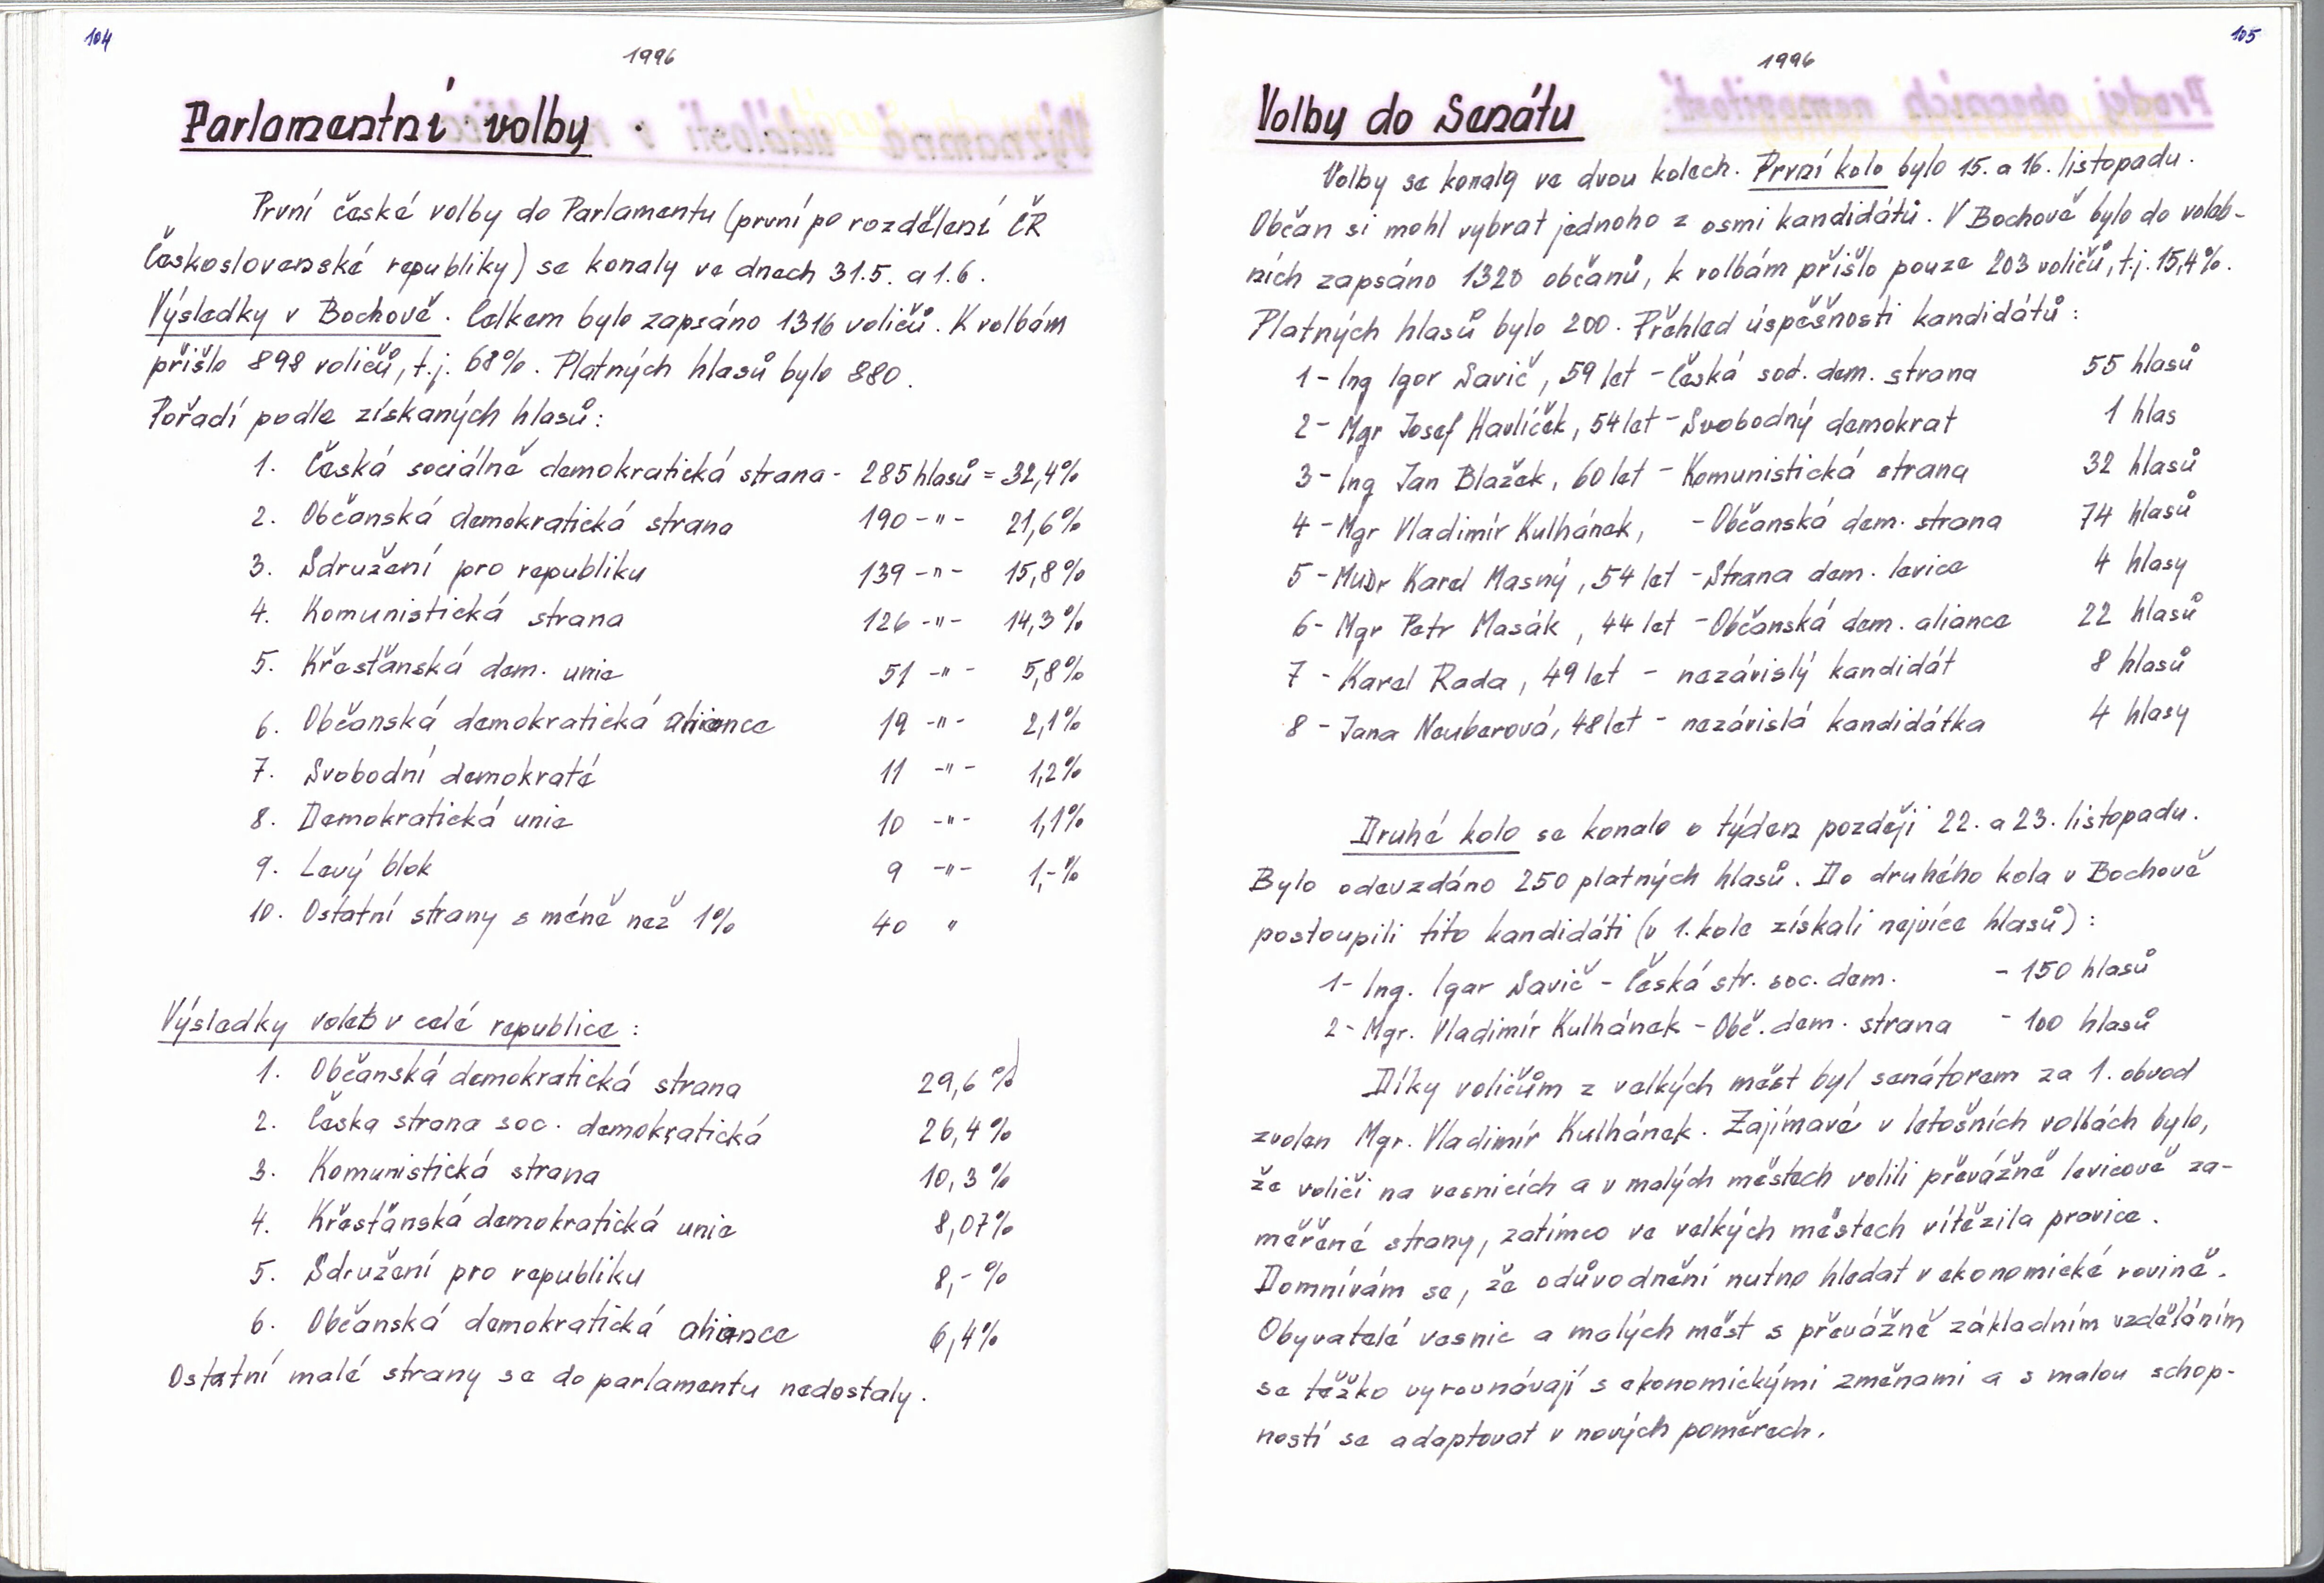 104
1996
Parlamentní volby
První české volby do Parlamentu (první po rozdělení ČR
Československé republiky) se konaly ve dnech 31.5. a 1.6.
Výsledky v Bochově. Celkem bylo zapsáno 1316 voličů. K volbám
přišlo 898 voličů, t.j. 68%. Platných hlasů bylo 880.
Pořadí podle získaných hlasů:
1. Česká sociálně demokratická strana - 285 hlasů = 32,4%
2. Občanská demokratická strana 190 -"- 21,6%
3. Sdružení pro republiku 139 -"- 15,8%
4. Komunistická strana 126 -"- 14,3%
5. Křesťanská dem. unie 51 -"- 5,8%
6. Občanská demokratická aliance 19 -"- 2,1%
7. Svobodní demokraté 11 -"- 1,2%
8. Demokratická unie 10 -"- 1,1%
9. Levý blok 9 -"- 1,-%
10. Ostatní strany s méně než 1% 40 "
Výsledky voleb v celé republice:
1. Občanská demokratická strana 29,6%
2. Česka strana soc. demokratická 26,4%
3. Komunistická strana 10,3%
4. Křesťánská demokratická unie 8,07%
5. Sdružení pro republiku 8,-%
6. Občanská demokratická aliance 6,4%
Ostatní malé strany se do parlamentu nedostaly.
105
1996
Volby do Senátu
Volby se konaly ve dvou kolech. První kolo bylo 15. a 16. listopadu.
Občan si mohl vybrat jednoho z osmi kandidátů. V Bochově bylo do voleb-
ních zapsáno 1320 občanů, k volbám přišlo pouze 203 voličů, t.j. 15,4%.
Platných hlasů bylo 200. Přehled úspěšnosti kandidátů:
1 - Ing Igor Savič, 59 let - Česká soc. dem. strana 55 hlasů
2 - Mgr Josef Havlíček, 54 let - Svobodný demokrat 1 hlas
3 - Ing Jan Blažek, 60 let - Komunistická strana 32 hlasů
4 - Mgr Vladimír Kulhánek, - Občanská dem. strana 74 hlasů
5 - MuDr Karel Masný, 54 let - Strana dem. levice 4 hlasy
6 - Mgr Petr Masák, 44 let - Občanská dem. aliance 22 hlasů
7 - Karel Rada, 49 let - nezávislý kandidát 8 hlasů
8 - Jana Neuberová, 48 let - nezávislá kandidátka 4 hlasy
Druhé kolo se konalo o týden později 22. a 23. listopadu.
Bylo odevzdáno 250 platných hlasů. Do druhého kola v Bochově
postoupili tito kandidáti (v 1. kole získali nejvíce hlasů):
1 - Ing. Igar Savič - Česká str. soc. dem. - 150 hlasů
2 - Mgr. Vladimír Kulhánek - Obč. dem. strana - 100 hlasů
Díky voličům z velkých měst byl senátorem za 1. obvod
zvolen Mgr. Vladimír Kulhánek. Zajímavé v letošních volbách bylo,
že voliči na vesnicích a v malých městech volili převážně levicově za-
měřené strany, zatímco ve velkých městech vítězila pravice.
Domnívám se, že odůvodnění nutno hledat v ekonomické rovině.
Obyvatelé vesnic a malých měst s převážně základním vzděláním
se těžko vyrovnávají s ekonomickými změnami a s malou schop-
ností se adaptovat v nových poměrech.